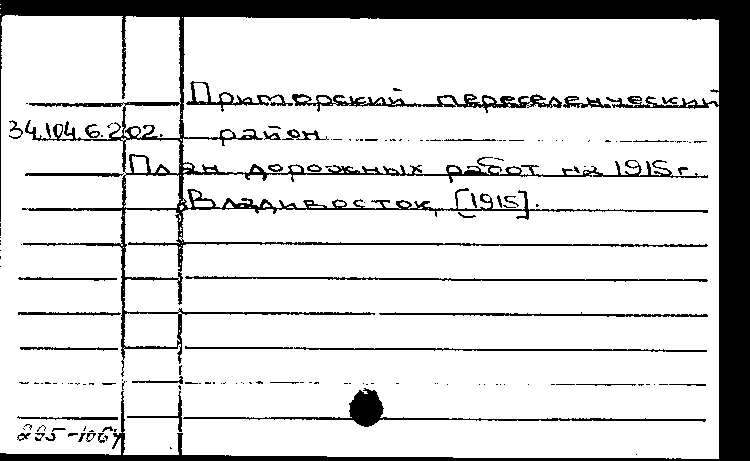 Приморский переселенческий
34.104.6.202. район
План дорожных работ на 1915 г.
Владивосток, [1915].
295-1064